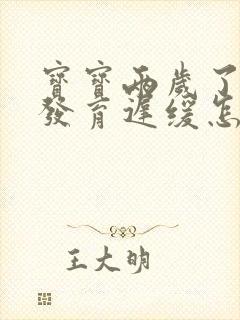 寶寶兩歲了
發育遲緩怎
王大明